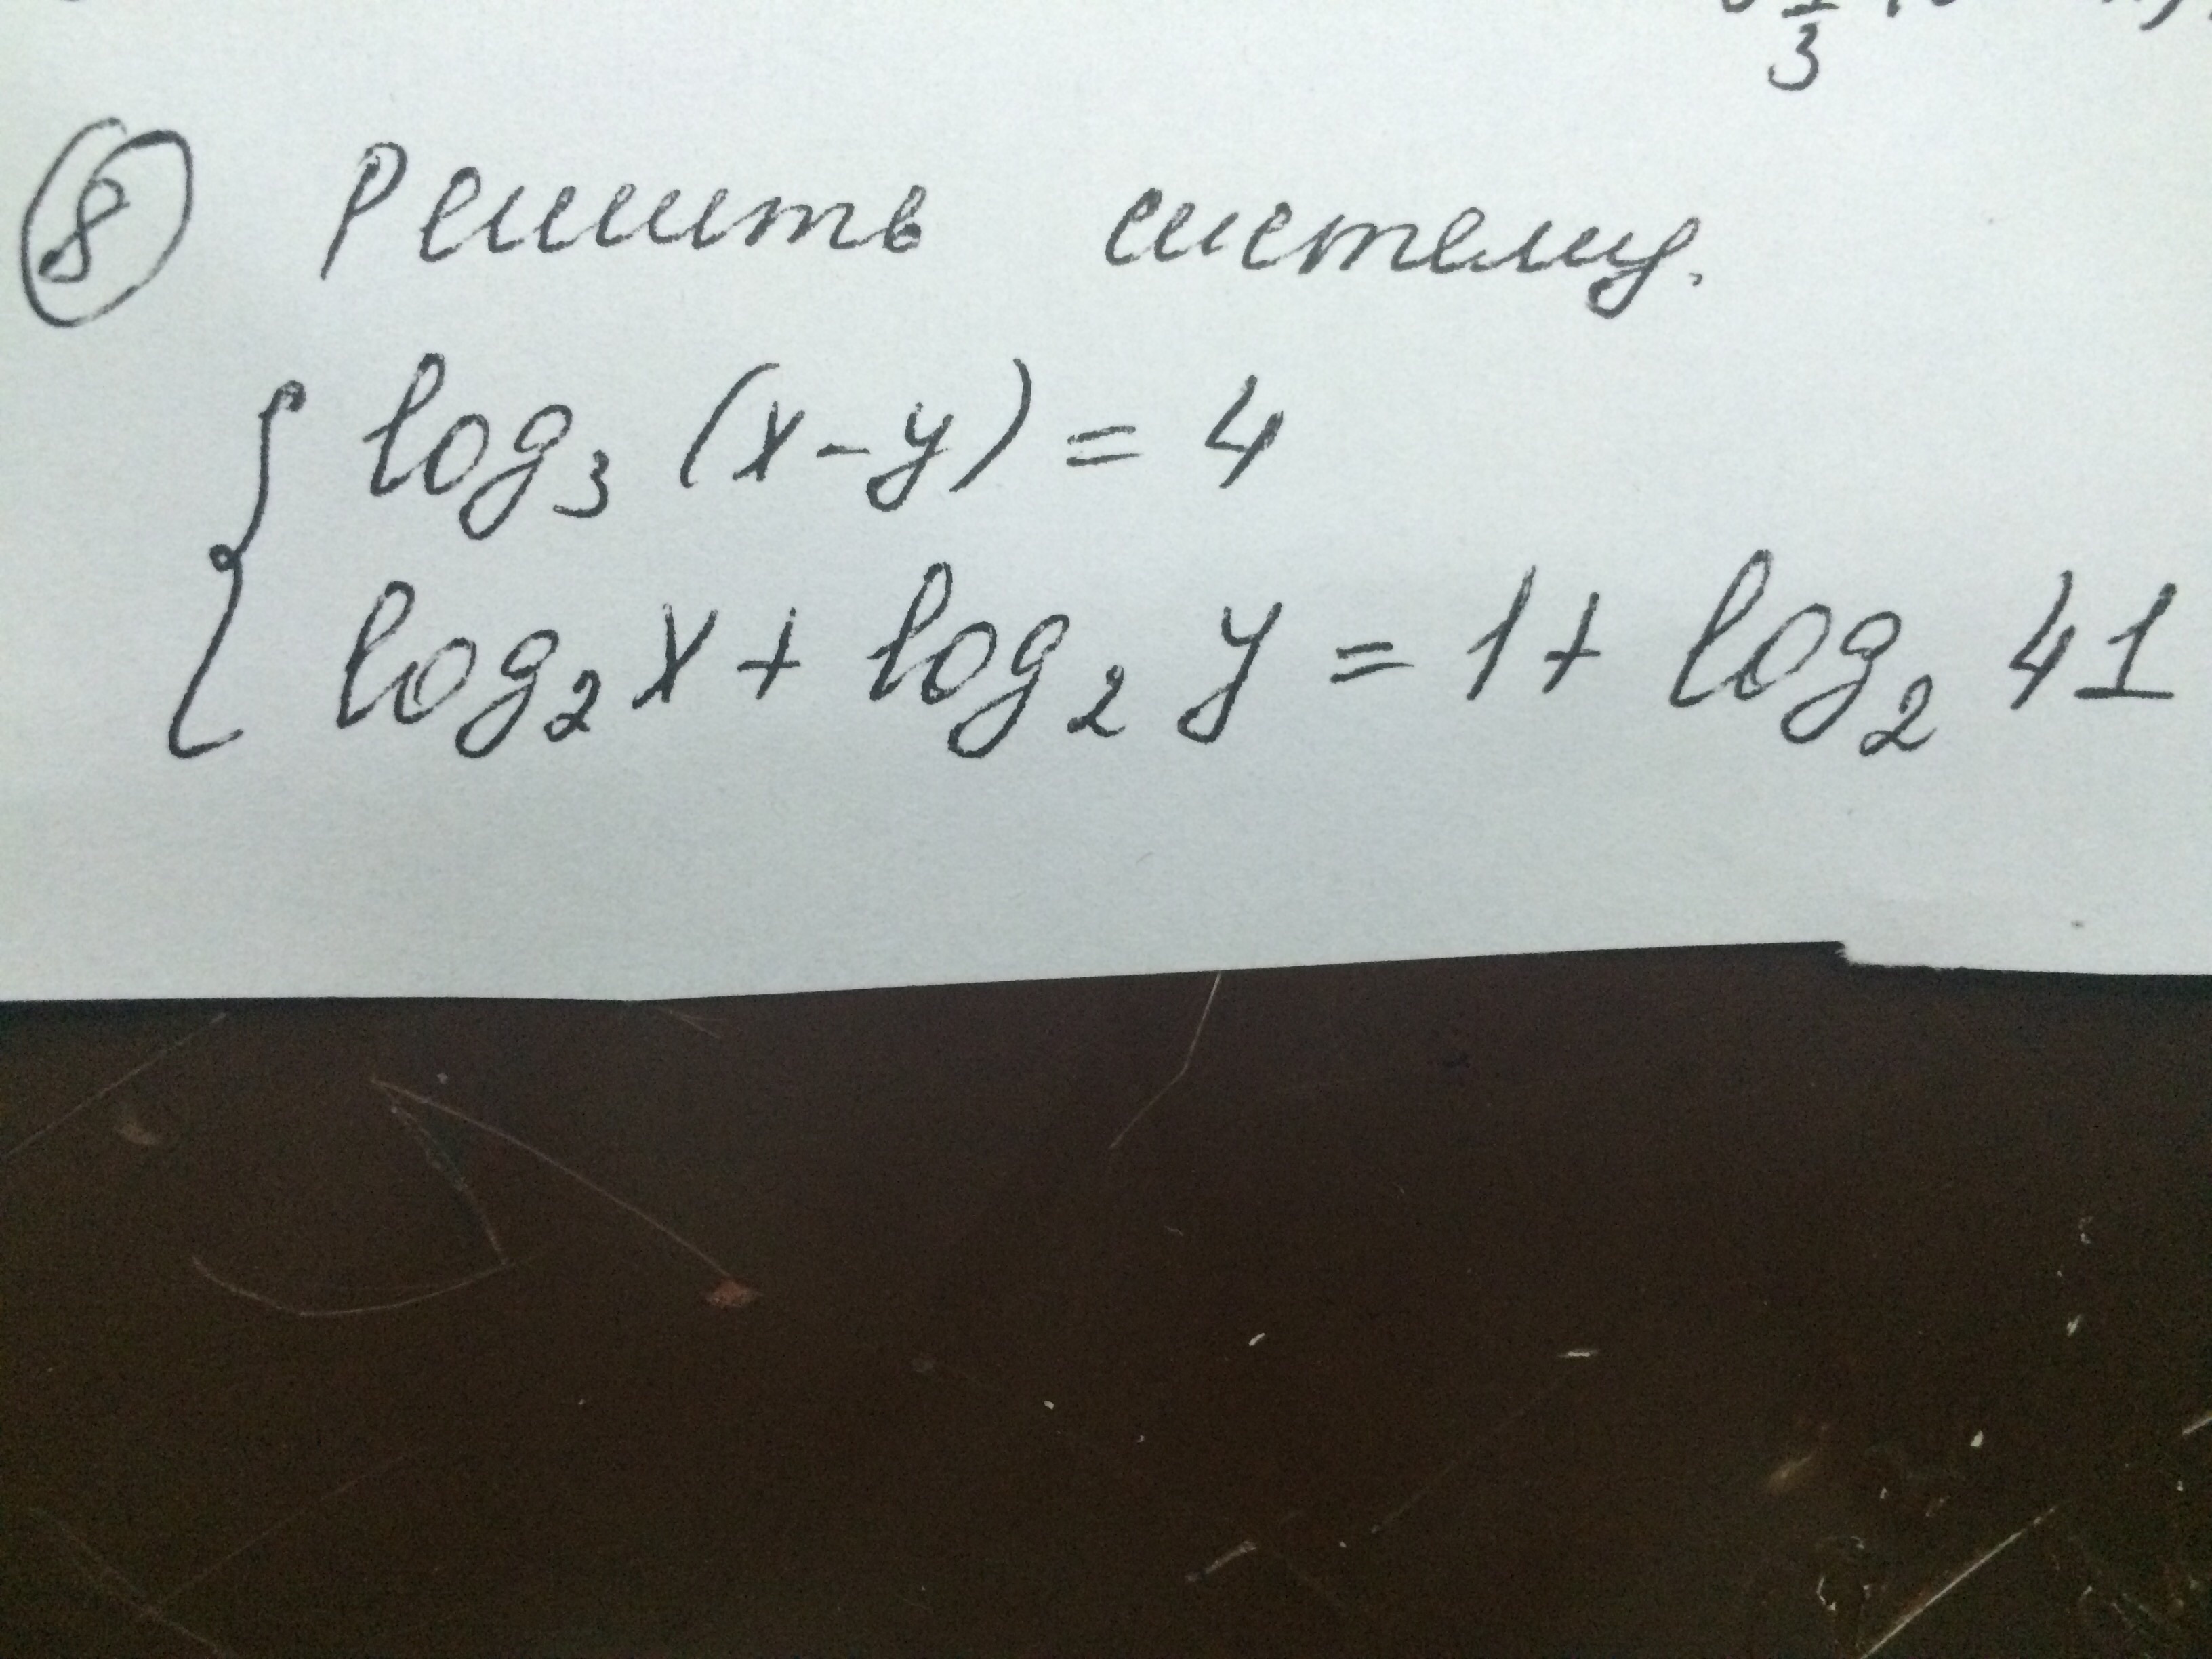 3
8 Решить систему.
log₃ (x-y) = 4
log₂ x + log₂ y = 1 + log₂ 41